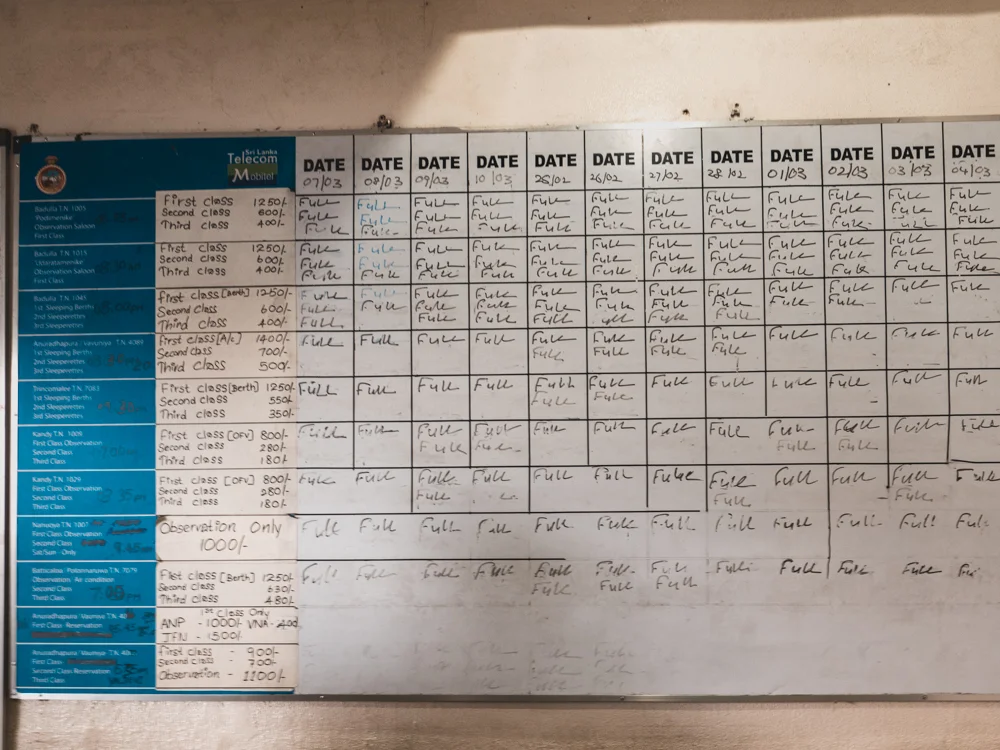 Sri Lanka
Telecom
Mobitel
DATE DATE DATE DATE DATE DATE DATE DATE DATE DATE DATE DATE
07/03 08/03 09/03 10/03 26/02 27/02 28/02 01/03 02/03 03/03 04/03
Badulla T.N. 1005
Podimenike
Observation Saloon
First Class
First class 1250/-
Second class 600/-
Third class 400/-
Full Full Full Full Full Full Full Full Full Full Full Full
Full Full Full Full Full Full Full Full Full Full Full Full
Full Full Full Full Full Full Full Full Full Full Full Full
Badulla T.N. 1015
Udaratamenike
Observation Saloon
First Class
First class 1250/-
Second class 600/-
Third class 400/-
Full Full Full Full Full Full Full Full Full Full Full Full
Full Full Full Full Full Full Full Full Full Full Full Full
Full Full Full Full Full Full Full Full Full Full Full Full
Badulla T.N. 1045
1st Sleeping Berths
2nd Sleeperettes
3rd Sleeperettes
First class [Berth] 1250/-
Second Class 600/-
Third class 400/-
Full Full Full Full Full Full Full Full Full Full Full Full
Full Full Full Full Full Full Full Full Full Full
Full Full Full Full Full Full Full Full
Anuradhapura / Vavuniya T.N. 4089
1st Sleeping Berths
2nd Sleeperettes
3rd Sleeperettes
First class [A/c] 1400/-
Second class 700/-
Third class 500/-
Full Full Full Full Full Full Full Full Full Full Full Full
Full Full Full Full
Trincomalee T.N. 7083
1st Sleeping Berths
2nd Sleeperettes
3rd Sleeperettes
First class (Berth) 1250/-
Second class 550/-
Third class 350/-
Full Full Full Full Full Full Full Full Full Full Full Full
Full Full
Kandy T.N. 1009
First Class Observation
Second Class
Third Class
First class [OFV] 800/-
Second class 280/-
Third class 180/-
Full Full Full Full Full Full Full Full Full Full Full Full
Full Full Full Full
Kandy T.N. 1029
First Class Observation
Second Class
Third Class
3.35 pm
First class [OFV] 800/-
Second class 280/-
Third class 180/-
Full Full Full Full Full Full Full Full Full Full Full Full
Full Full Full
Nanuoya T.N. 1001
First Class Observation
Second Class
Sat/Sun - Only
Observation Only
1000/-
Full Full Full Full Full Full Full Full Full Full Full Full
Batticaloa / Polonnaruwa T.N. 7079
Observation / Air condition
Second Class
Third Class
First class [Berth] 1250/-
Second class 630/-
Third class 480/-
Full Full Full Full Full Full Full Full Full Full Full
Full Full Full
Anuradhapura / Vavuniya T.N.
First Class Reservation
1st Class Only
ANP - 1000/- VNA - 
JFN - 1500/-
Anuradhapura / Vavuniya T.N.
First Class
Second Class Reservation
Third Class
First class - 900/-
Second class - 700/-
Observation - 1100/-